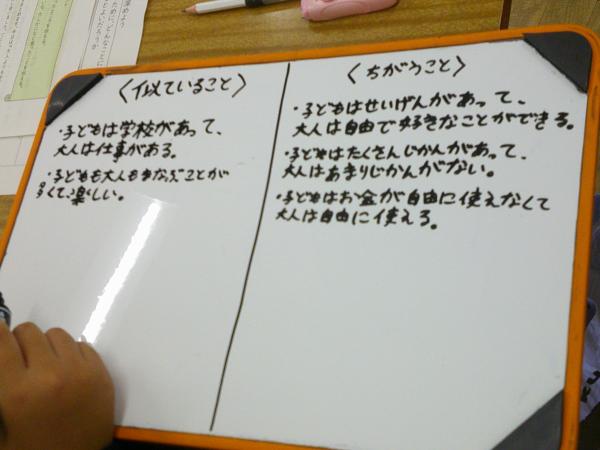 〈似ていること〉
・子どもは学校があって、
大人は仕事がある。
・子どもも大人もまなぶことが
多くて、楽しい。
〈ちがうこと〉
・子どもはせいげんがあって、
大人は自由で好きなことができる。
・子どもはたくさんじかんがあって、
大人はあまりじかんがない。
・子どもはお金が自由に使えなくて
大人は自由に使える。